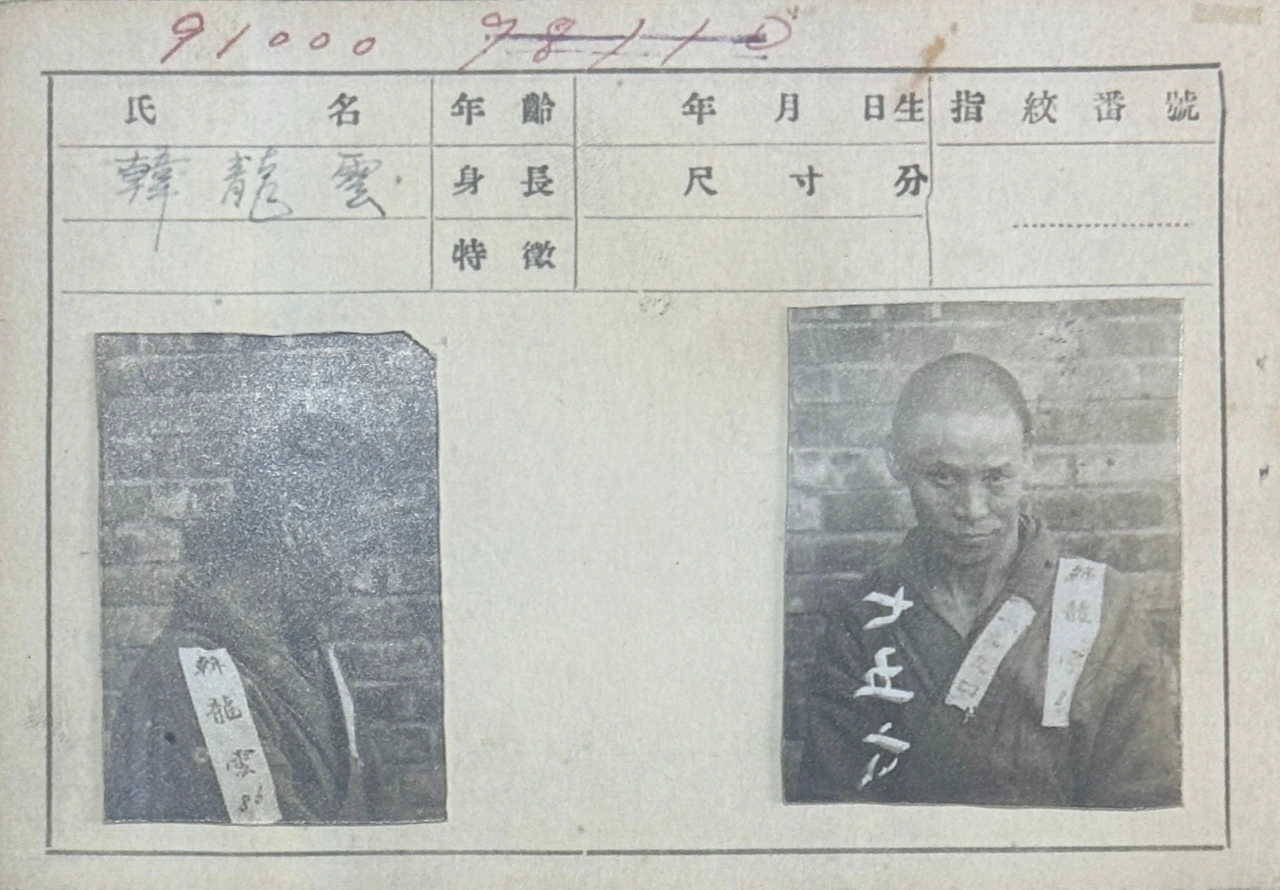 91000 98110
氏名 年齡 年月日生 指紋番號
韓龍雲 身長 尺寸分
特徵
韓龍雲 86
韓龍雲